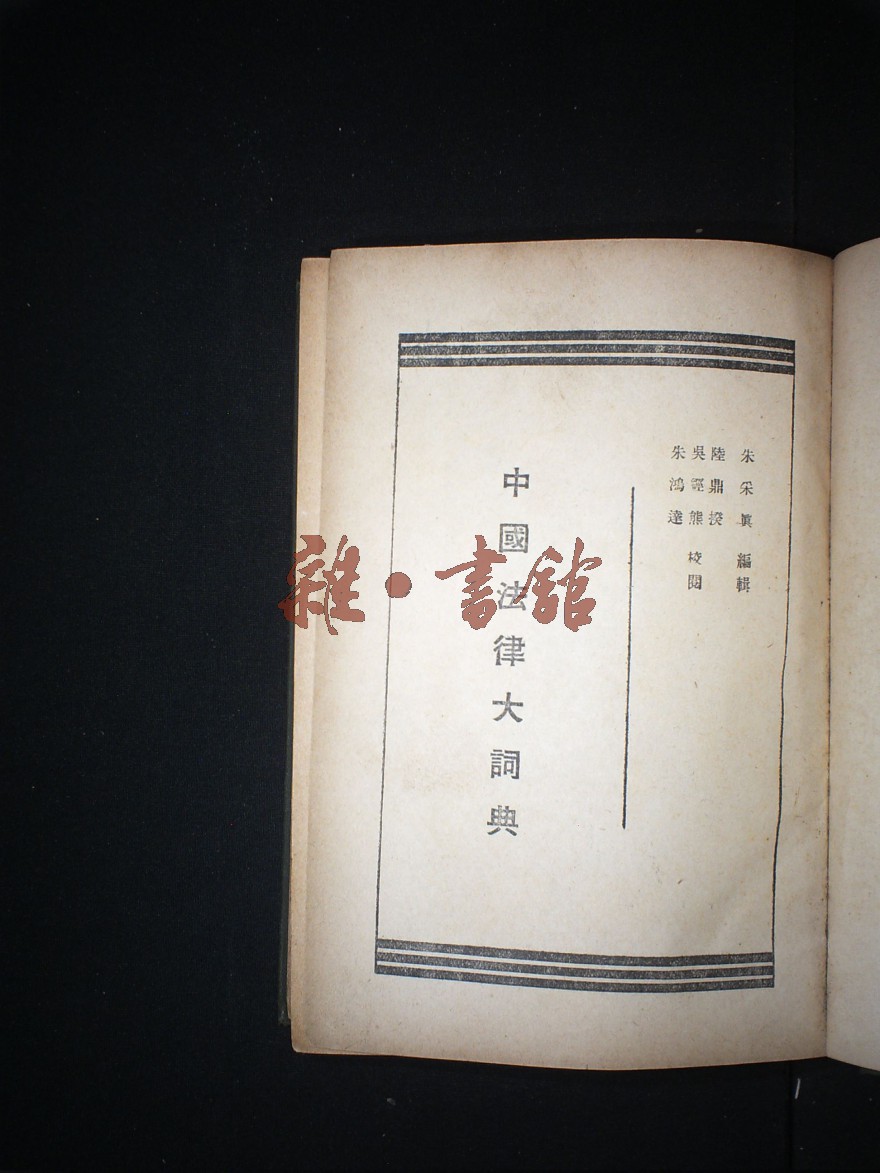 朱采眞 編輯
陸鼎揆
吳經熊 校閱
朱鴻達
中國法律大詞典
雜·書舘